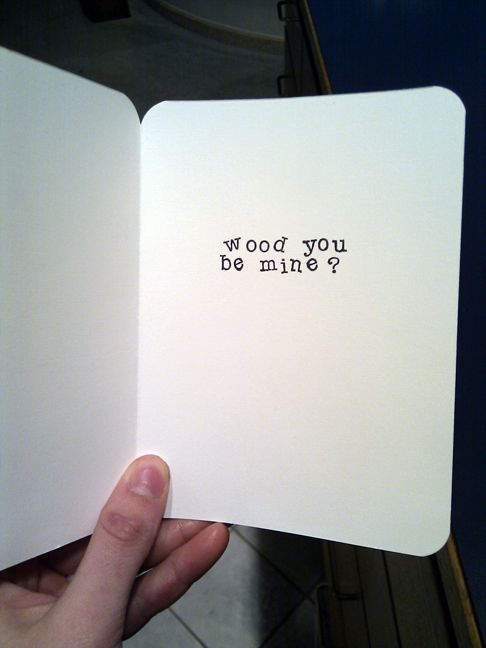 wood you
be mine?